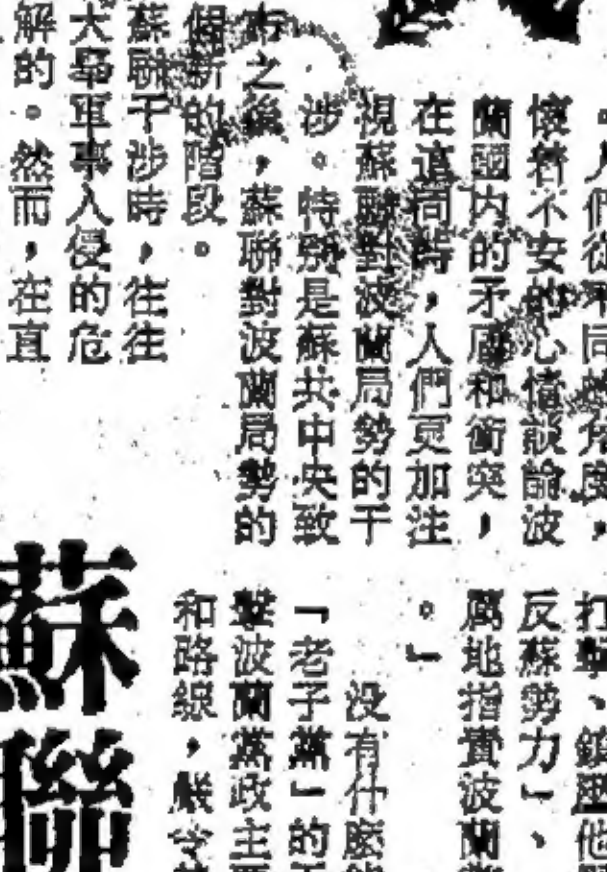 人們從不同的角度，
懷着不安的心情談論波
蘭國内的矛盾和衝突，
在這同時，人們更加注
視蘇聯對波蘭局勢的干
涉。特别是蘇共中央致
之後，蘇聯對波蘭局勢的
個新的階段。
蘇聯干涉時，往往
大舉軍事入侵的危
解的。然而，在直
打擊、鎮壓他
反蘇勢力」、
厲地指責波蘭
。」
没有什麽
「老子黨」的
擊波蘭黨政主要
和路線，嚴令
蘇聯